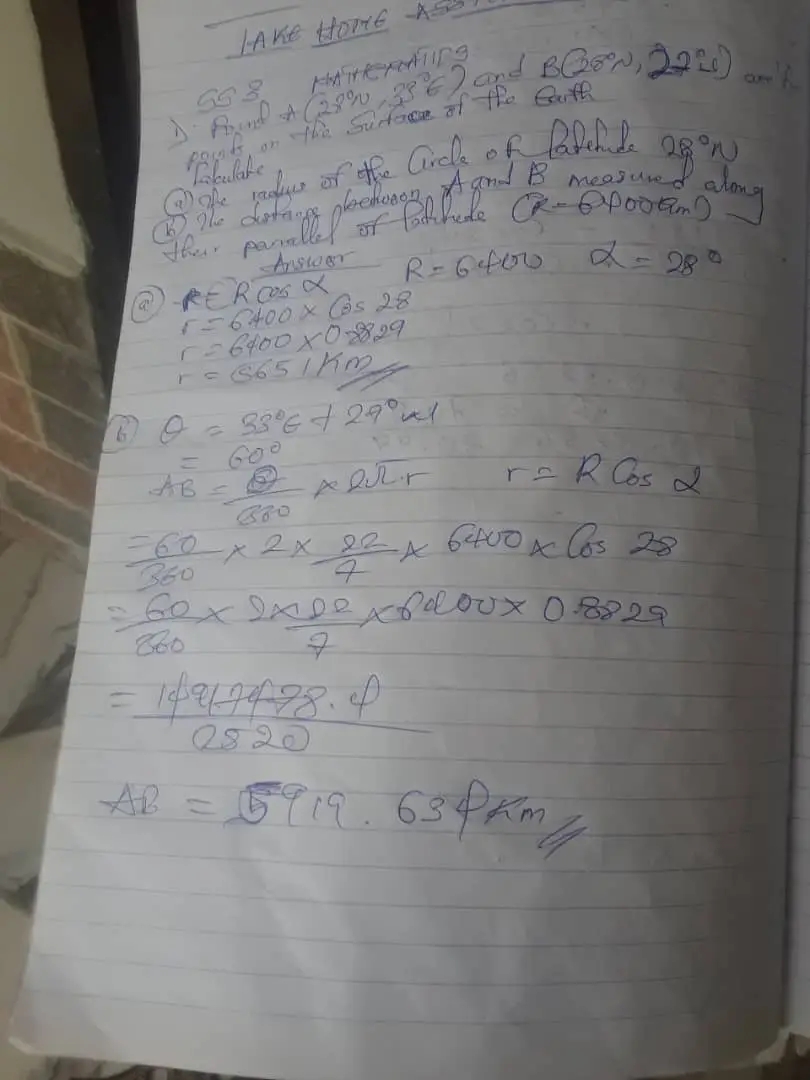 TAKE HOME ASS
SS 3 MATHEMATICS
1). Point A (28°N, 33°E) and B(28°N, 27°W) are the
points on the Surface of the Earth
Calculate
(a) The radius of the Circle of latitude 28°N
(b) The distance between A and B measured along
their parrallel of latitude (R = 6400km)
Answer
(a) r = R Cos α R = 6400 α = 28°
r = 6400 × Cos 28
r = 6400 × 0.8829
r = 5651 Km
(b) θ = 33°E + 27°W
= 60°
AB = θ/360 × 2π.r r = R Cos α
= 60/360 × 2 × 22/7 × 6400 × Cos 28
= 60/360 × 2 × 22/7 × 6400 × 0.8829
2520
AB = 5919.634 Km